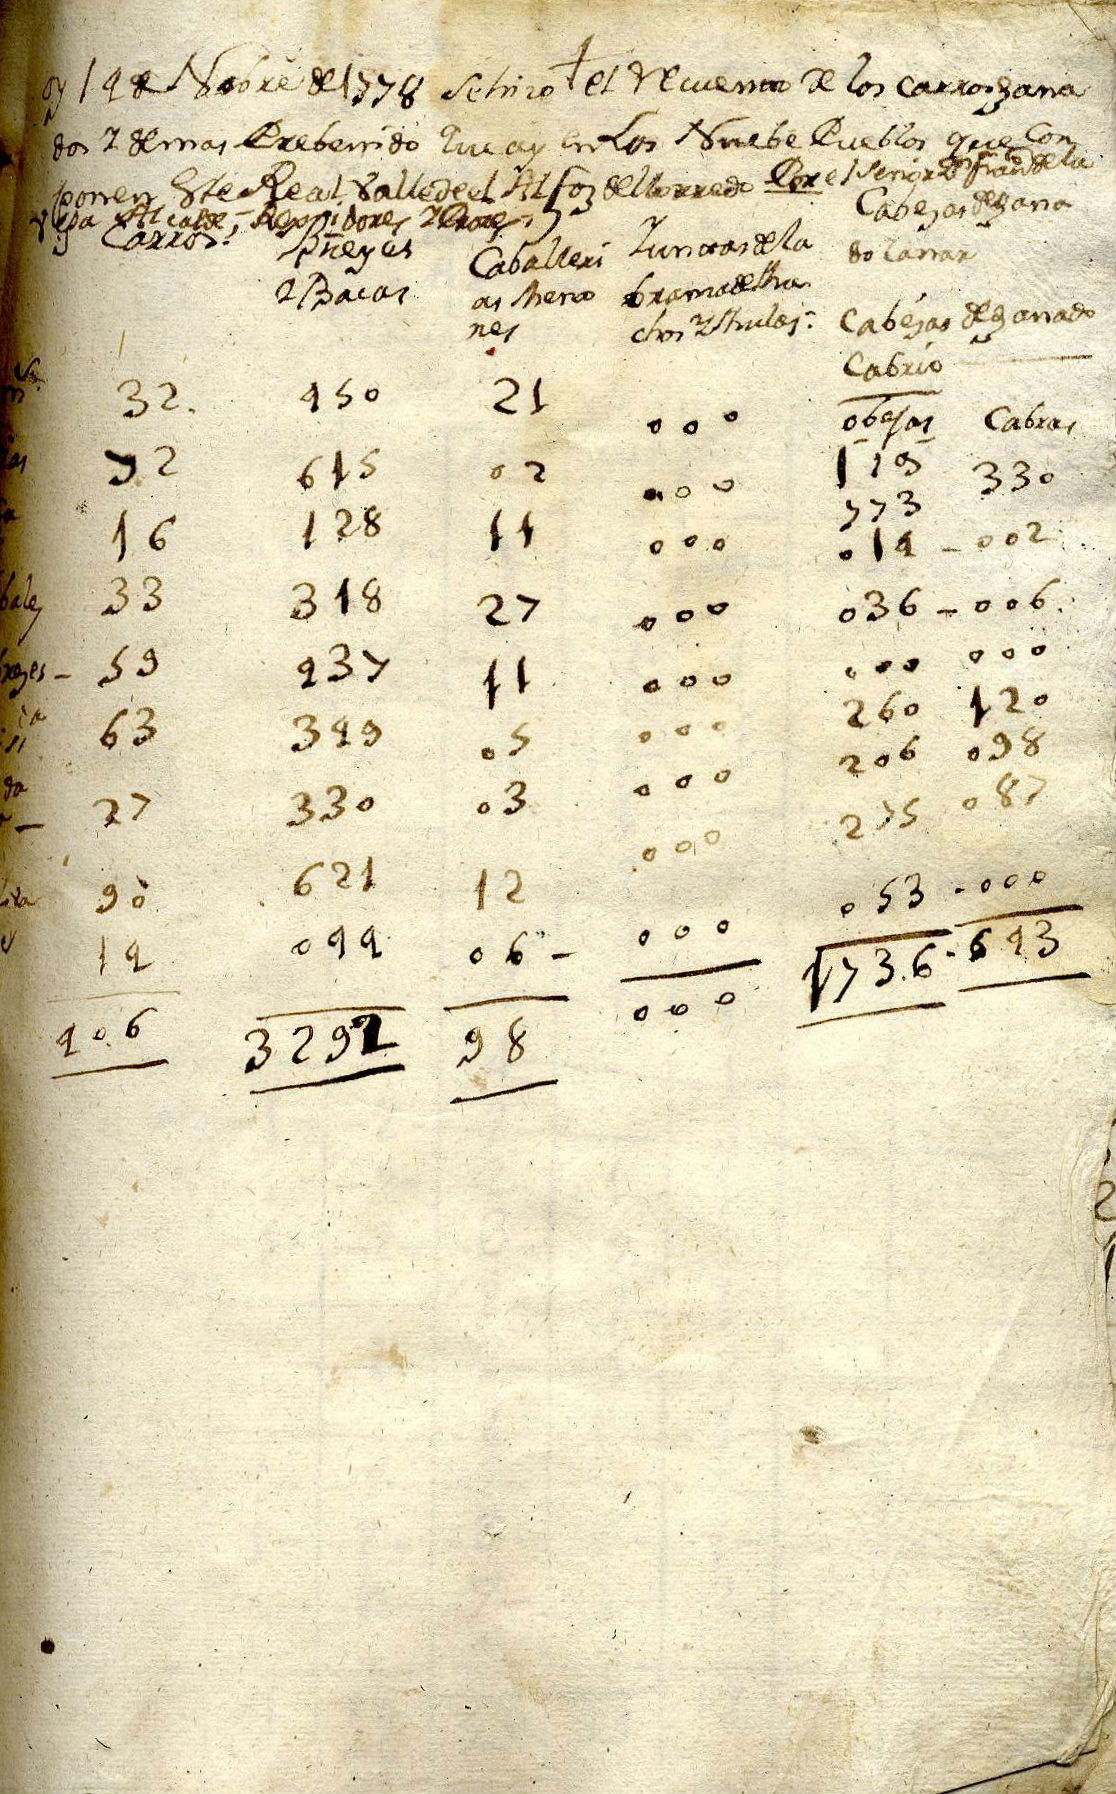 oy 14 de Nobre de 1778 se hizo el Recuento de los Carros gana
dos 2 demas Prebenido que ay en Los Nuebe Pueblos que Com
ponen Este Real Valle de el Alfoz de lloredo Por el Señor Dn Franco de la
Vega Alcalde, Regidores 2
Carros. Bueyes 2 Bacas Caballeri as Meno res Juntas de la branza de Ma chos 2 Mulas: Cabezas de gana do lanar
Cabezas de ganado Cabrio
obejas Cabras
32. 450 21 000 119 330
72 615 02 000 773
16 128 11 000 014 - 002
bales 33 318 27 000 036 - 006
59 437 11 000 000 000
63 349 05 000 260 120
27 330 03 000 206 098
90 621 12 000 275 087
14 044 06 - 000 053 - 000
406 3292 98 000 1736 - 643